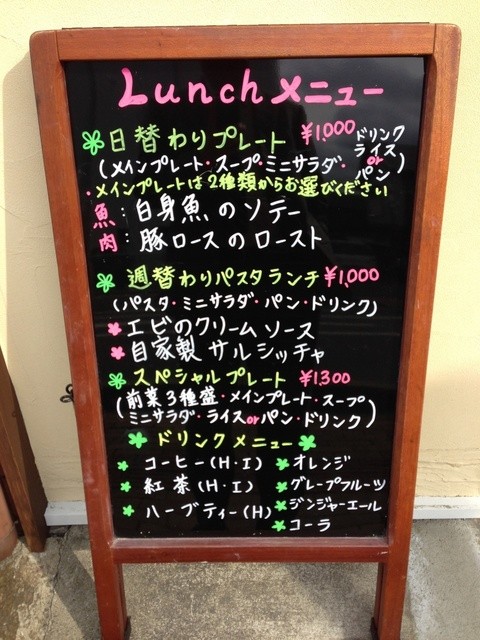 Lunchメニュー
日替わりプレート ¥1,000
(メインプレート・スープ・ミニサラダ・ドリンク ライス or パン)
・メインプレートは2種類からお選びください
魚:白身魚のソテー
肉:豚ロースのロースト
週替わりパスタランチ ¥1,000
(パスタ・ミニサラダ・パン・ドリンク)
エビのクリームソース
自家製サルシッチャ
スペシャルプレート ¥1,300
(前菜3種盛・メインプレート・スープ
ミニサラダ・ライスorパン・ドリンク)
ドリンクメニュー
コーヒー(H・I) オレンジ
紅茶(H・I) グレープフルーツ
ハーブティー(H) ジンジャーエール
コーラ